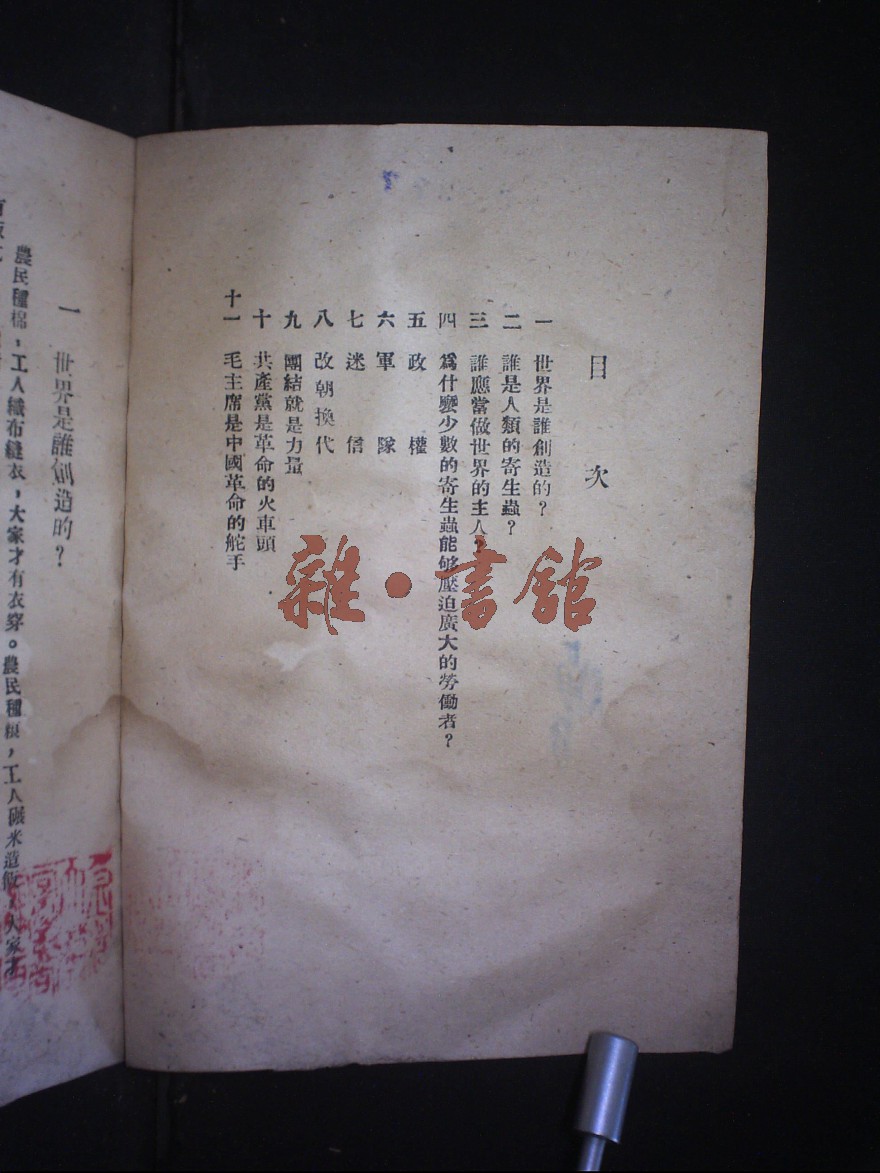 目次
一 世界是誰創造的？
二 誰是人類的寄生蟲？
三 誰應當做世界的主人？
四 爲什麼少數的寄生蟲能够壓迫廣大的勞働者？
五 政權
六 軍隊
七 迷信
八 改朝換代
九 團結就是力量
十 共產黨是革命的火車頭
十一 毛主席是中國革命的舵手
雜·書館
一 世界是誰創造的？
農民種棉，工人織布縫衣，大家才有衣穿。農民種糧，工人碾米造飯，大家才